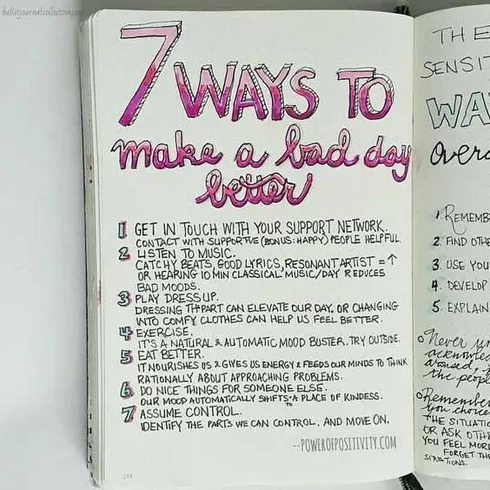 bulletjournalcollection.com
7 WAYS TO
make a bad day
better
1 GET IN TOUCH WITH YOUR SUPPORT NETWORK.
CONTACT WITH SUPPORTIVE (BONUS: HAPPY) PEOPLE HELPFUL.
2 LISTEN TO MUSIC.
CATCHY BEATS, GOOD LYRICS, RESONANT ARTIST = ↑
OR HEARING 10 MIN CLASSICAL MUSIC/DAY REDUCES
BAD MOODS.
3 PLAY DRESS UP.
DRESSING TH PART CAN ELEVATE OUR DAY. OR CHANGING
INTO COMFY CLOTHES CAN HELP US FEEL BETTER.
4 EXERCISE.
IT'S A NATURAL & AUTOMATIC MOOD BUSTER. TRY OUTSIDE.
5 EAT BETTER.
IT NOURISHES US & GIVES US ENERGY & FEEDS OUR MINDS TO THINK
RATIONALLY ABOUT APPROACHING PROBLEMS.
6 DO NICE THINGS FOR SOMEONE ELSE.
OUR MOOD AUTOMATICALLY SHIFTS TO A PLACE OF KINDESS.
7 ASSUME CONTROL.
IDENTIFY THE PARTS WE CAN CONTROL. AND MOVE ON.
--POWEROFPOSITIVITY.COM
THE
SENSIT
WA
over
1. REMEMB
2. FIND OTHE
3. USE YOU
4. DEVELOP
5. EXPLAIN
Never un
acknowle
the peop
Remember
you choice
THE SITUATIO
OR ASK OTHE
YOU FEEL MORE
FORGET THE
SITUATIONS.